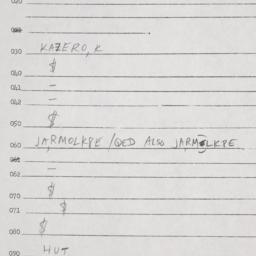 020
030 KAZERO, K
$
040
041 —
042 —
$
050
060 JARMOLKPE /QED ALSO JARMOLKPE
061
062 —
$
070
071 $
080 $
090 HUT